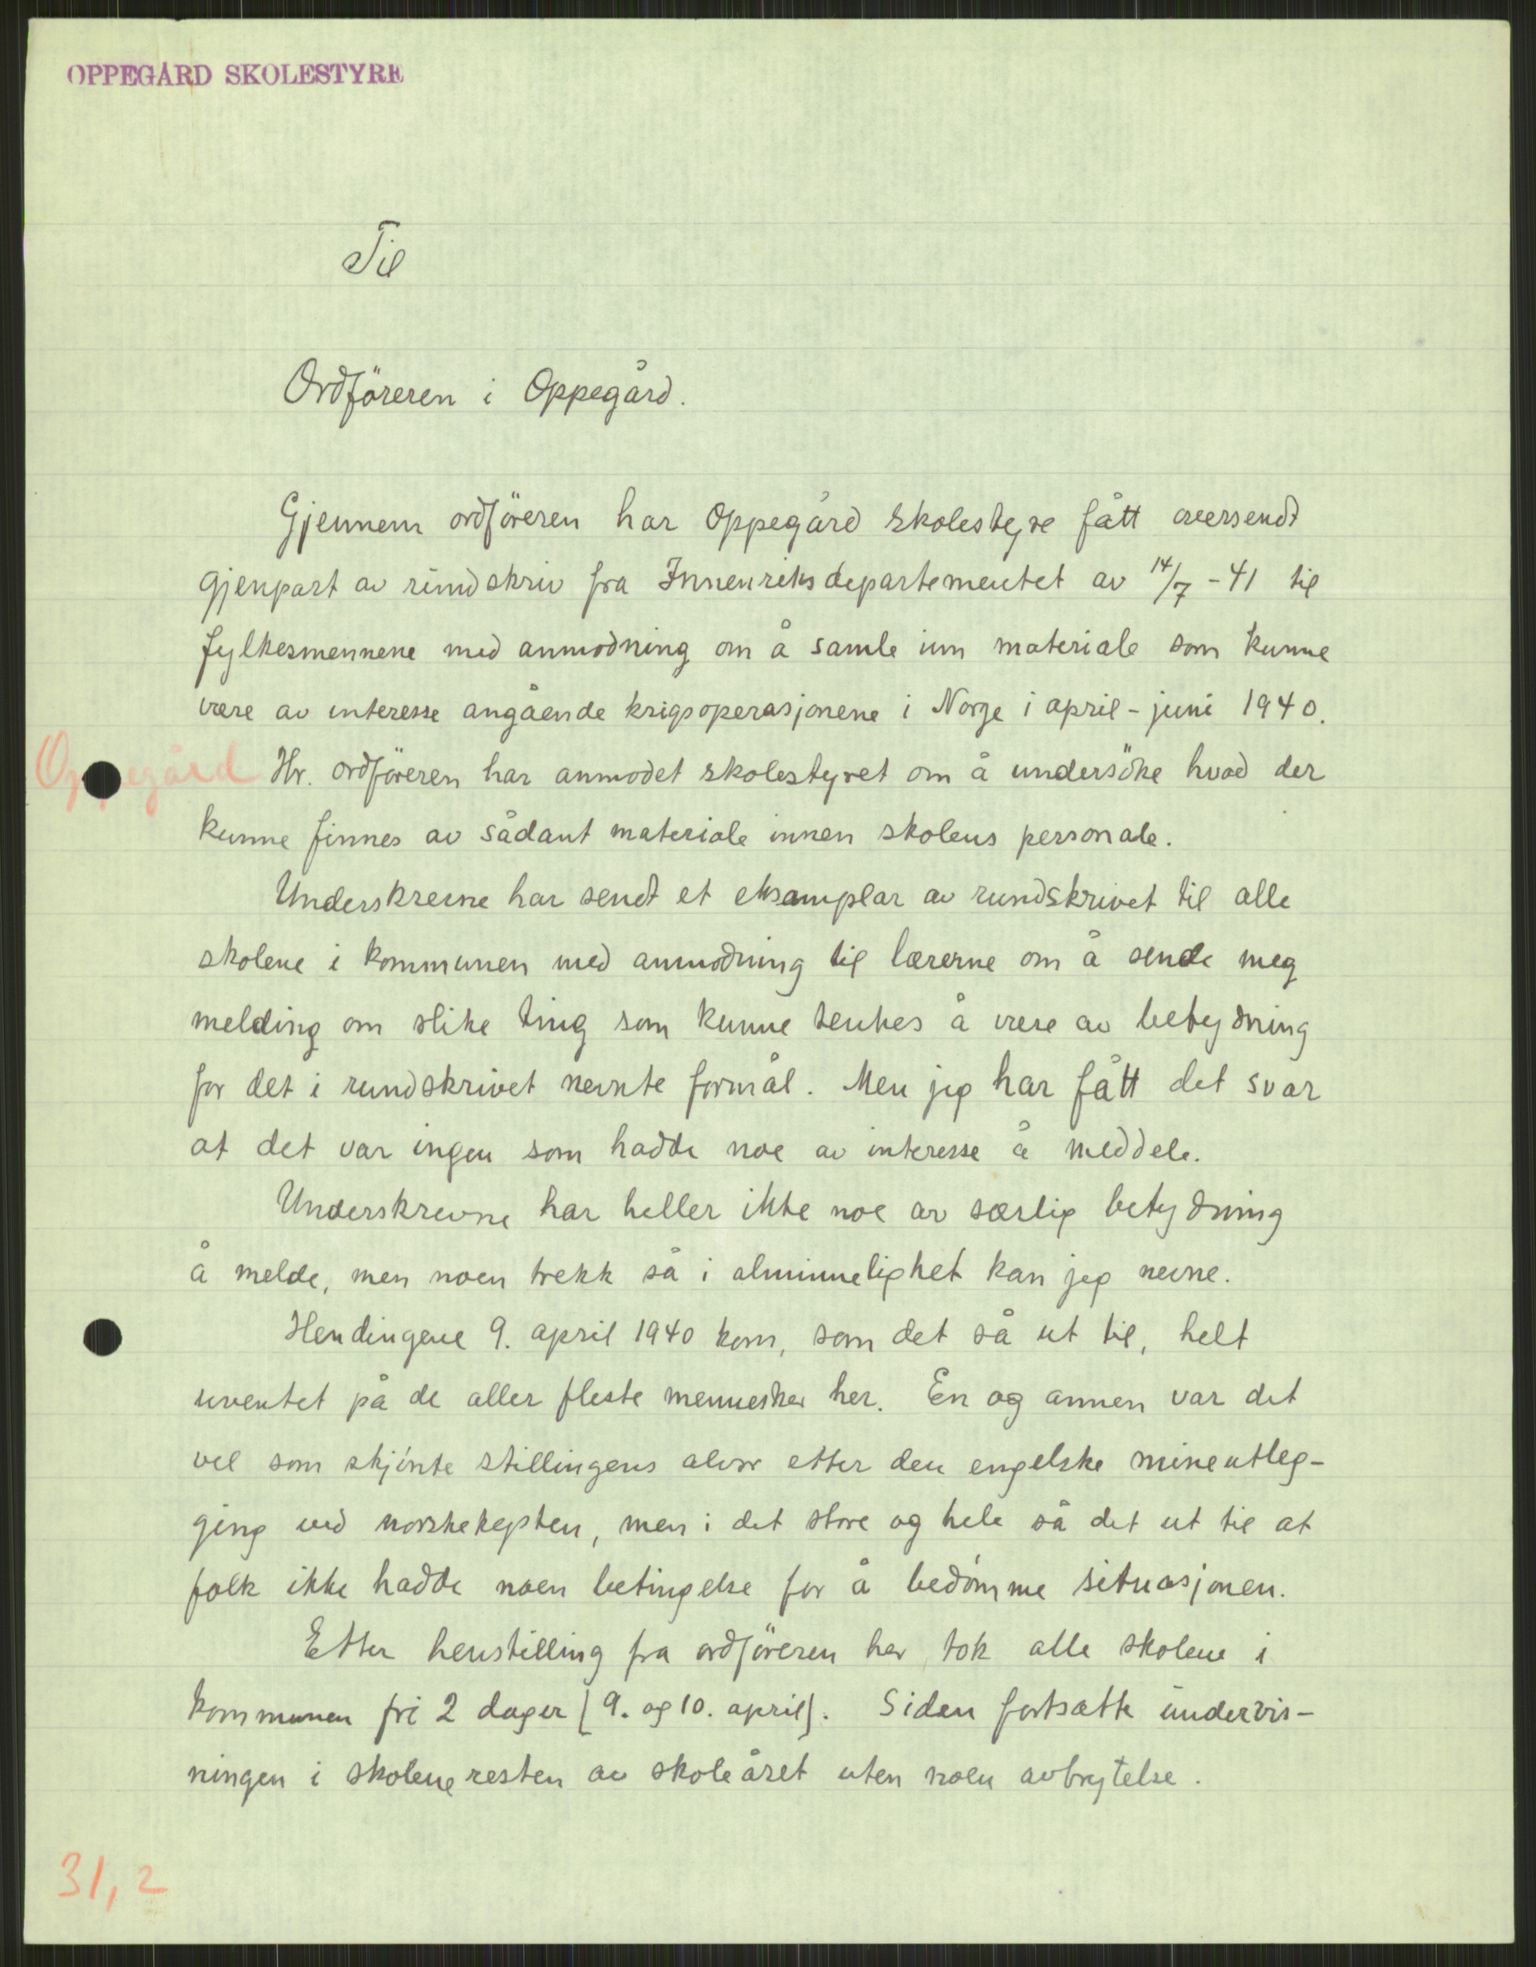 OPPEGÅRD SKOLESTYRE
Til
Ordföreren i Oppegård.
Gjennem ordföreren har Oppegård skolestyre fått oversendt
gjenpart av rundskriv fra Innenriksdepartementet av 14/7 -41 til
fylkesmennene med anmodning om å samle inn materiale som kunne
være av interesse angående krigsoperasjonene i Norge i april - juni 1940.
Oppegård
Hr. ordföreren har anmodet skolestyret om å undersöke hvad der
kunne finnes av sådant materiale innen skolens personale.
Underskrevne har sendt et eksemplar av rundskrivet til alle
skolene i kommunen med anmodning til lærerne om å sende meg
melding om slike ting som kunne tenkes å være av betydning
for det i rundskrivet nevnte formål. Men jeg har fått det svar
at det var ingen som hadde noe av interesse å meddele.
Underskrevne har heller ikke noe av særlig betydning
å melde, men noen trekk så i alminnelighet kan jeg nevne.
Hendingene 9. april 1940 kom, som det så ut til, helt
uventet på de aller fleste mennesker her. En og annen var det
vel som skjönte stillingens alvor etter den engelske mineutleg-
ging ved norskekysten, men i det store og hele så det ut til at
folk ikke hadde noen betingelse for å bedömme situasjonen.
Etter henstilling fra ordföreren her tok alle skolene i
kommunen fri 2 dager [9. og 10. april]. Siden fortsatte undervis-
ningen i skolene resten av skoleåret uten noen avbrytelse.
31,2